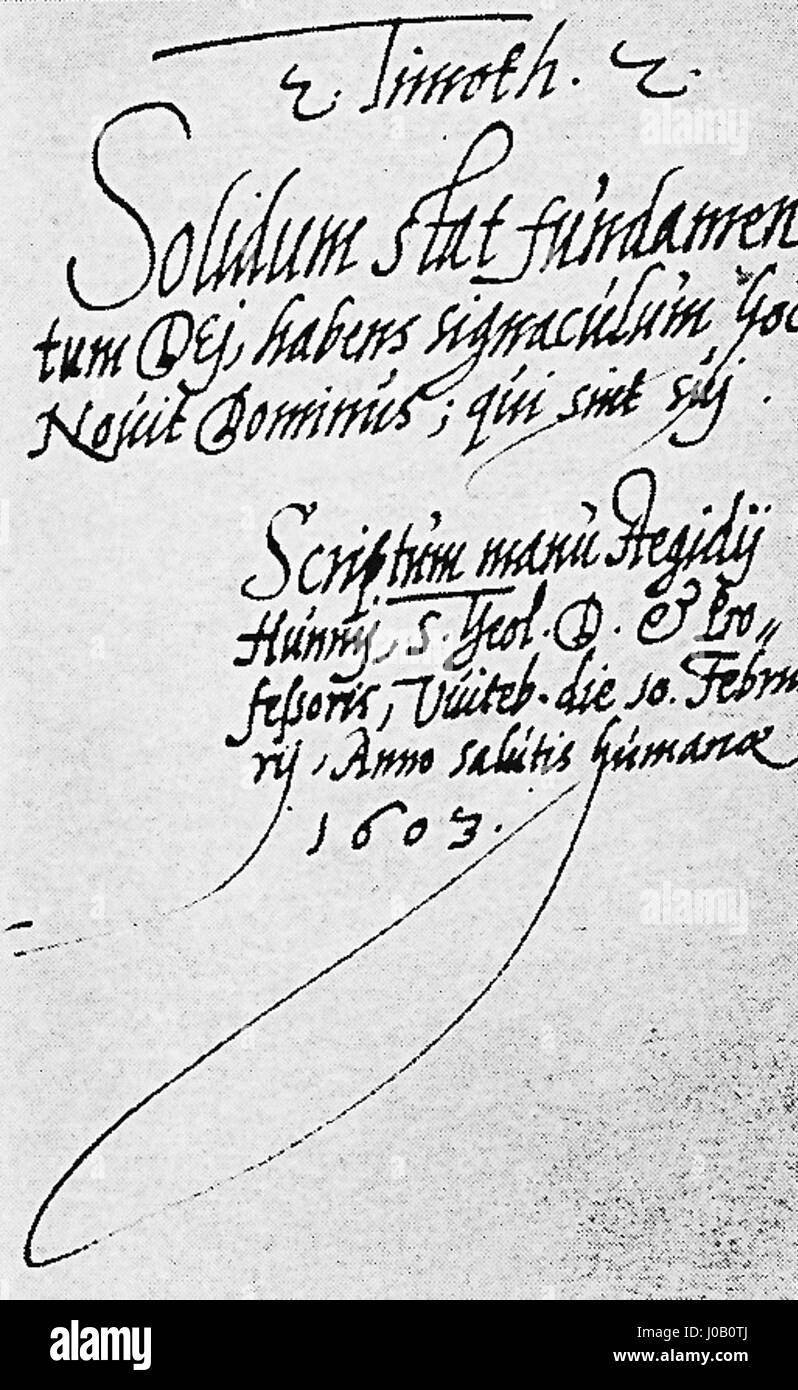 2. Timoth. 2.
Solidum stat fundamen
tum DEj, habens signaculum hoc
Novit Dominus; qui sint sui.
Scriptum manu Aegidij
Hunnij, S. Theol. D. & Pro„
fessoris, Witeb. die 10. Februa
rij, Anno salutis humanae
1603.
alamy
Image ID: J0B0TJ
www.alamy.com